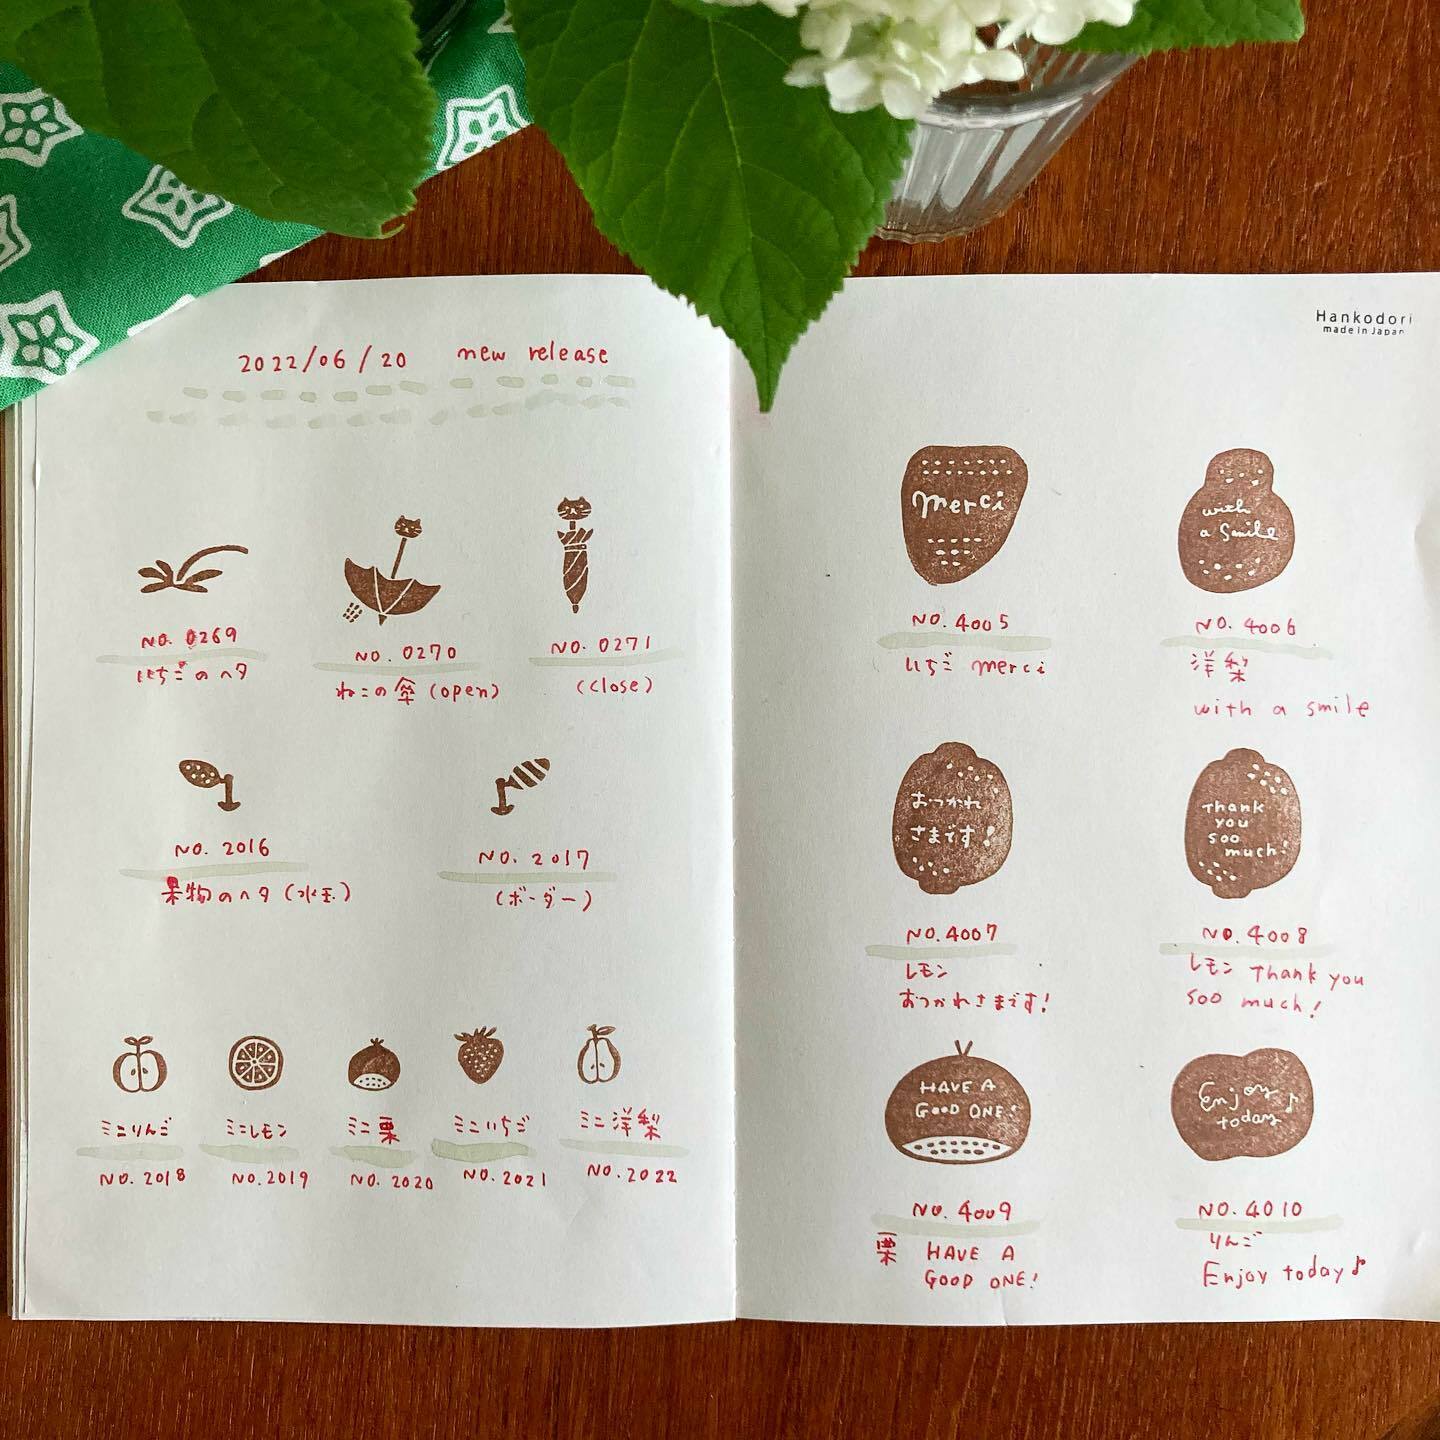 2022/06/20 new release
NO. 0269
いちごのヘタ
NO. 0270
ねこの傘(open)
NO. 0271
(close)
NO. 2016
果物のヘタ(水玉)
NO. 2017
(ボーダー)
ミニりんご
NO. 2018
ミニレモン
NO. 2019
ミニ栗
NO. 2020
ミニいちご
NO. 2021
ミニ洋梨
NO. 2022
Hankodori
made in Japan
merci
NO. 4005
いちご merci
with
a smile
NO. 4006
洋梨
with a smile
おつかれ
さまです!
NO. 4007
レモン
おつかれさまです!
Thank
you
soo
much!
NO. 4008
レモン Thank you
soo much!
HAVE A
GOOD ONE!
NO. 4009
栗 HAVE A
GOOD ONE!
Enjoy
today♪
NO. 4010
りんご
Enjoy today♪